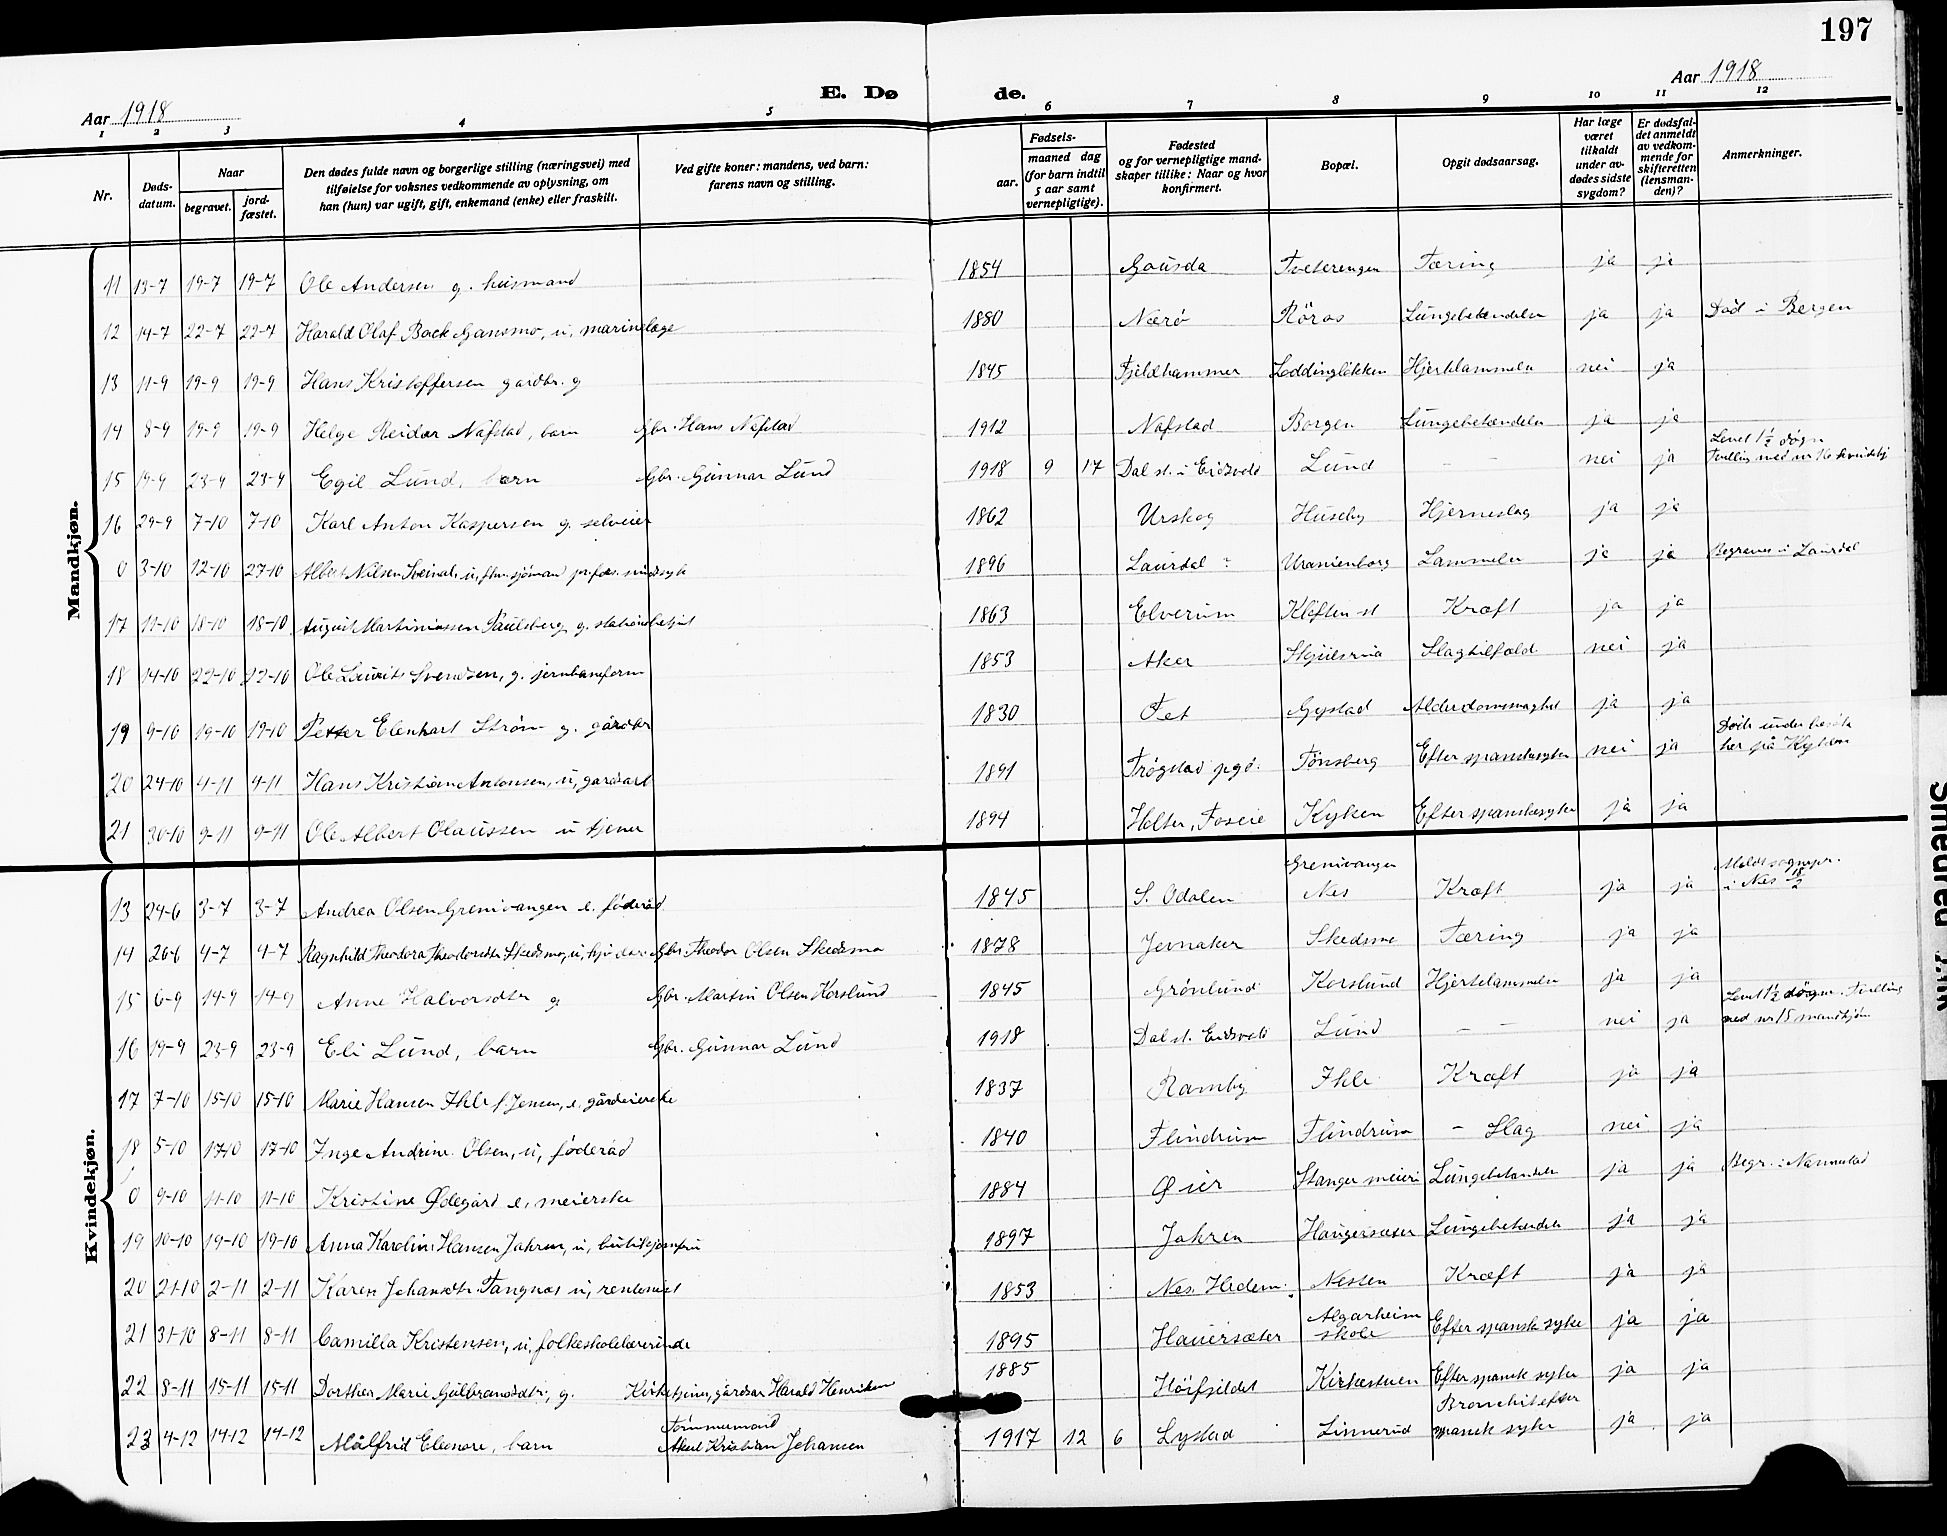 197
E. Døde.
Aar 1918
Aar 1918
1 2 3 4 5 6 7 8 9 10 11 12
Nr.
Døds-datum.
Naar
begravet.
jord-fæstet.
Den dødes fulde navn og borgerlige stilling (næringsvei) med
tilføielse for voksnes vedkommende av oplysning, om
han (hun) var ugift, gift, enkemand (enke) eller fraskilt.
Ved gifte koner: mandens, ved barn:
farens navn og stilling.
Fødsels-
aar. maaned dag
(for barn indtil
5 aar samt
vernepligtige).
Fødested
og for vernepligtige mand-
skaper tillike: Naar og hvor
konfirmert.
Bopæl.
Opgit dødsaarsag.
Har læge
været
tilkaldt
under av-
dødes sidste
sygdom?
Er dødsfal-
det anmeldt
av vedkom-
mende for
skifteretten
(lensman-
den)?
Anmerkninger.
Mandkjøn.
11 13-7 19-7 19-7 Ole Andersen g. husmand 1854 Gausda Tveterengen Tæring ja ja
12 14-7 22-7 22-7 Harald Olaf Back Gansmo, u, marinelæge 1880 Nærö Röros Lungebetændelse ja ja Död i Bergen
13 11-9 19-9 19-9 Hans Kristoffersen gardbr. g 1845 Fjeldhammer Loddinglökken Hjertelammelse nei ja
14 8-9 19-9 19-9 Helge Reidar Nafstad, barn Gbr. Hans Nafstad 1912 Nafstad Borgen Lungebetændelse ja ja
15 19-9 23-9 23-9 Egil Lund, barn Gbr. Gunnar Lund 1918 9 17 Dal st. i Eidsvold Lund - - nei ja Levet 1 1/2 døgn
Tvilling med nr 16 kvindekj
16 29-9 7-10 7-10 Karl Anton Kaspersen g. selveier 1862 Urskog Huseby Hjerneslag ja ja
0 3-10 12-10 27-10 Albert Nilsen u, sjömand 1896 Laurdal ? Uranienborg Lammelse ja ja Begraves i Laurdal
17 11-10 18-10 18-10 August Martiniussen Paulsberg g. stationsbetjent 1863 Elverum Klöften st Kræft ja ja
18 14-10 22-10 22-10 Ole Laurits Svendsen, g. jernbaneform 1853 Aker Skjulsrud Slagtilfæld nei ja
19 9-10 19-10 19-10 Petter Elenhart Ström g. gårdbr 1830 Fet Gystad Alderdomssvaghet ja ja
20 24-10 4-11 4-11 Hans Kristian Antonsen, u, gardsarb 1891 Trögstad pgd. Tönsberg Efter spanskesyken nei ja Döde under besök
her på Kyken
21 30-10 9-11 9-11 Ole Albert Olaussen u tjener 1894 Holter, Foseie Kyken Efter spanskesyke ja ja
Kvindekjøn.
13 24-6 3-7 3-7 Andrea Olsen Grenivangen e. föderåd 1845 S. Odalen Grenivangen
Nes Kræft ja ja Meldt sognepr.
i Nes 18/2
14 26-6 4-7 4-7 Ragnhild Theodora Theodorsdtr Skedsmo, u, Gbr. Theodor Olsen Skedsmo 1878 Jevnaker Skedsmo Tæring ja ja
15 6-9 14-9 14-9 Anne Halvorsdtr g Gbr. Martin Olsen Korslund 1845 Grönlund Korslund Hjertelammelse ja ja
16 19-9 23-9 23-9 Eli Lund, barn Gbr. Gunnar Lund 1918 Dal st. Eidsvold Lund - - nei ja Levet 1 1/2 døgn. Tvilling
med nr 15 mandkjøn
17 7-10 15-10 15-10 Marie Hansen Ihle f. Jensen, e. gårdeierske 1837 Ramby Ihle Kræft ja ja
18 5-10 17-10 17-10 Inge Andrine Olsen, u, föderåd 1840 Flindrum Flindrum - Slag nei ja
0 9-10 11-10 11-10 Kristine Ødegård e, meierske 1884 Øier Stanger meieri Lungebetændelse ja ja Begr. i Nannestad
19 10-10 19-10 19-10 Anna Karoline Hansen Jahren, u, butikjomfru 1897 Jahren Haugersæter Lungebetændelse ja ja
20 21-10 2-11 2-11 Karen Johansdtr Tangnæs u, rentenist 1853 Nes. Hedem. Nesten Kræft ja ja
21 31-10 8-11 8-11 Camilla Kristensen, u, folkeskolelærerinde 1895 Hauersæter Algarheim
skole Efter spansk syke ja ja
22 8-11 15-11 15-11 Dorthea Marie Gulbrandsdtr, g. Kirketjener, gårdsar Harald Henriksen 1885 Höifjeldet Kirkestuen Efter spansk syke ja ja
23 4-12 14-12 14-12 Målfrid Eleonore, barn Tömmermand
Aksel Kristian Johansen 1917 12 6 Lystad Linnerud Bronchit efter
spansk syke ja ja